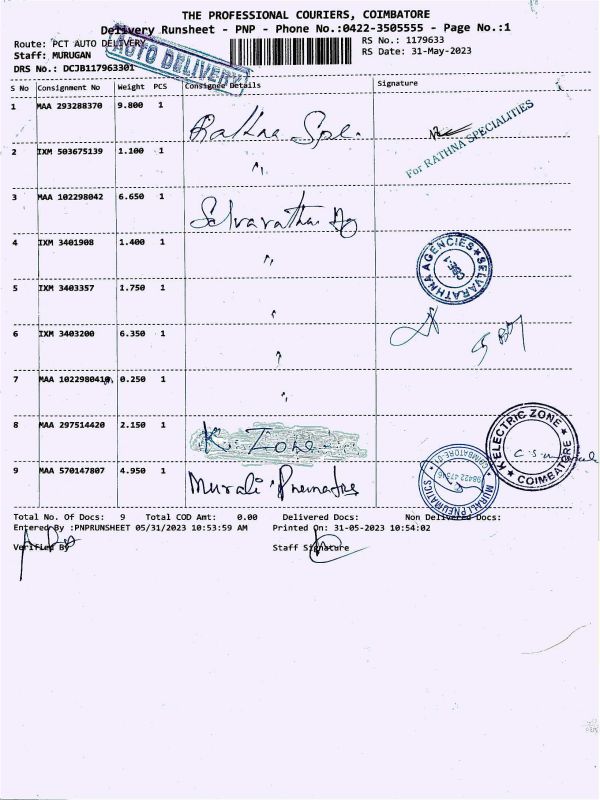 THE PROFESSIONAL COURIERS, COIMBATORE
Delivery Runsheet - PNP - Phone No.:0422-3505555 - Page No.:1
Route: PCT AUTO DELIVERY
RS No.: 1179633
Staff: MURUGAN
RS Date: 31-May-2023
AUTO DELIVERY
DRS No.: DCJB117963301
S No Consignment No Weight PCS Consignee Details Signature
1 MAA 293288370 9.800 1 Rathna Spl.
For RATHNA SPECIALITIES
2 IXM 503675139 1.100 1 "
3 MAA 102298042 6.650 1 Selvarathna Ag
4 IXM 3401908 1.400 1 "
SELVARATHNA AGENCIES
CBE-1
5 IXM 3403357 1.750 1 "
6 IXM 3403200 6.350 1 "
7 MAA 1022980410 0.250 1 "
8 MAA 297514420 2.150 1 K. Zone
K ELECTRIC ZONE
COIMBATORE
9 MAA 570147807 4.950 1 Murali Pneumatics
MURALI PNEUMATICS
Total No. Of Docs: 9 Total COD Amt: 0.00 Delivered Docs: Non Delivered Docs:
Entered By :PNPRUNSHEET 05/31/2023 10:53:59 AM Printed On: 31-05-2023 10:54:02
Verified By Staff Signature